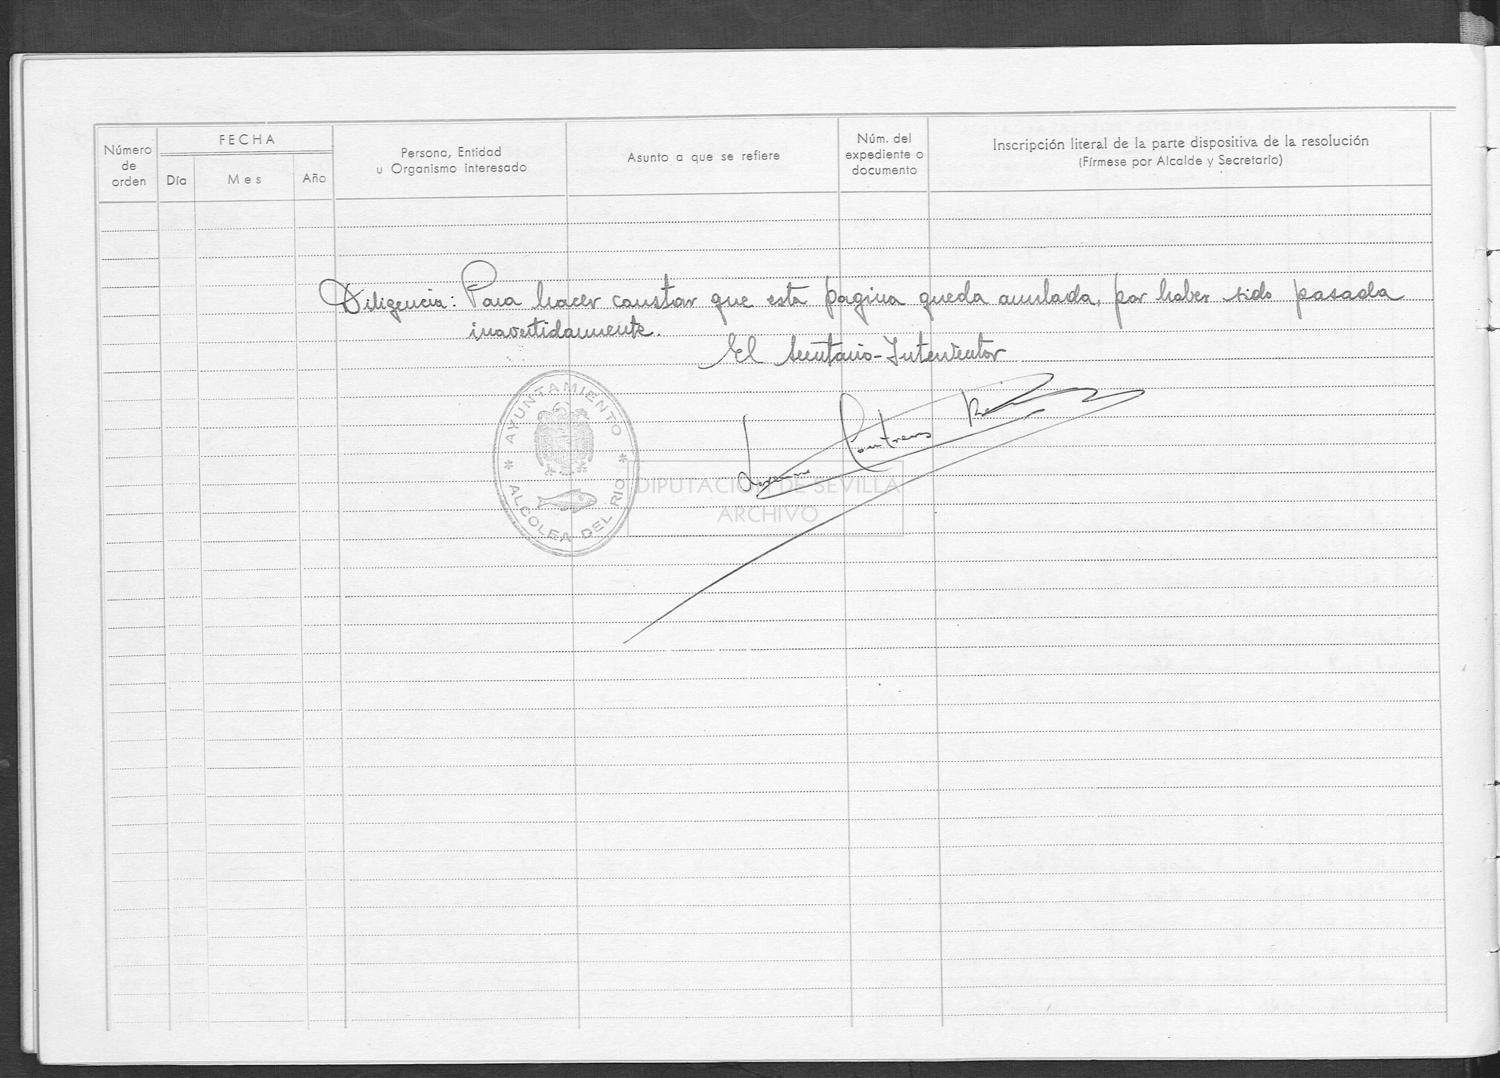 Número de orden
FECHA
Día
Mes
Año
Persona, Entidad
u Organismo interesado
Asunto a que se refiere
Núm. del
expediente o
documento
Inscripción literal de la parte dispositiva de la resolución
(Fírmese por Alcalde y Secretario)
Diligencia: Para hacer constar que esta pagina queda anulada, por haber sido pasada
inavertidamente.
El Secretario-Interventor
Contreras
AYUNTAMIENTO
ALCOLEA DEL RIO
DIPUTACIÓN DE SEVILLA
ARCHIVO